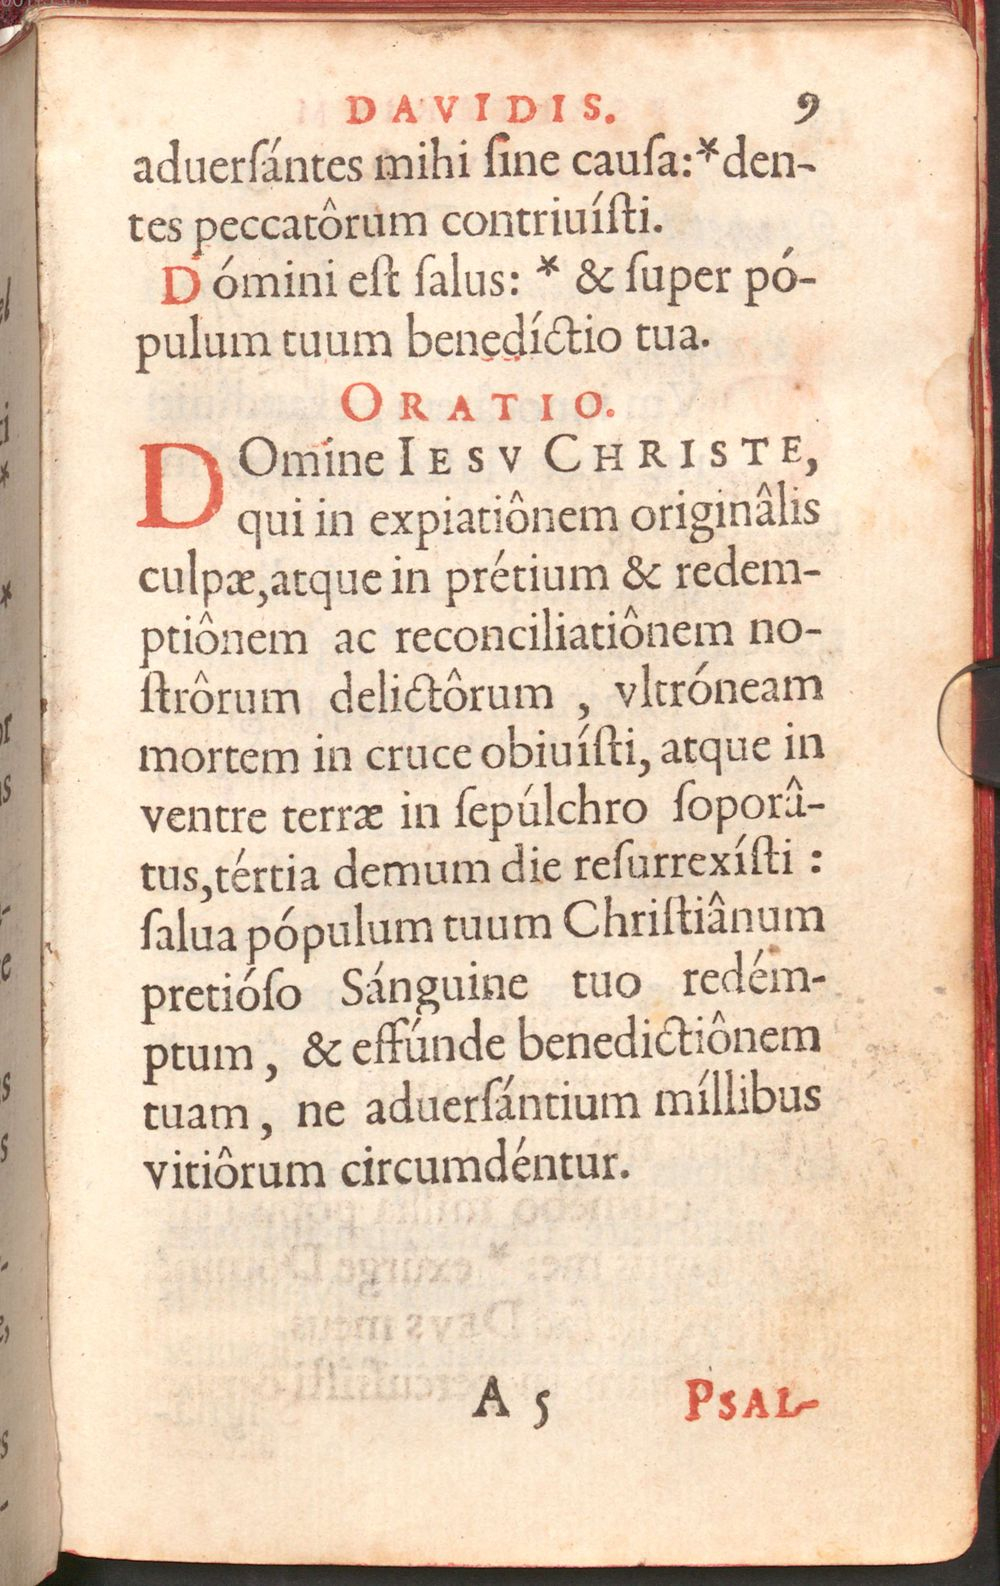 DAVIDIS. 9
aduerſántes mihi ſine cauſa:*den-
tes peccatôrum contriuíſti.
Dómini eſt ſalus: * & ſuper pó-
pulum tuum benedíctio tua.
ORATIO.
DOmine IESV CHRISTE,
qui in expiatiônem originâlis
culpæ,atque in prétium & redem-
ptiônem ac reconciliatiônem no-
ſtrôrum delictôrum , vltróneam
mortem in cruce obiuíſti, atque in
ventre terræ in ſepúlchro ſoporâ-
tus,tértia demum die reſurrexíſti :
ſalua pópulum tuum Chriſtiânum
pretióſo Sánguine tuo redém-
ptum, & effúnde benedictiônem
tuam, ne aduerſántium míllibus
vitiôrum circumdéntur.
A 5 PSAL-